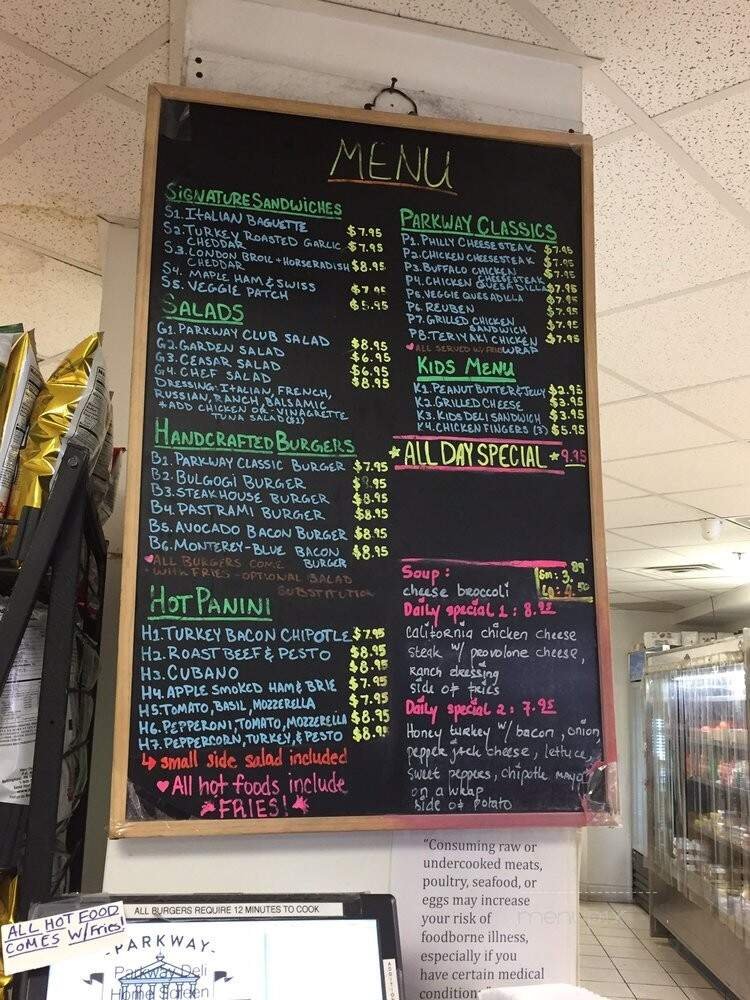 MENU
SIGNATURE SANDWICHES
S1. ITALIAN BAGUETTE $7.95
S2. TURKEY ROASTED GARLIC $7.95
CHEDDAR
S3. LONDON BROIL + HORSERADISH $8.95
CHEDDAR
S4. MAPLE HAM & SWISS $7.95
S5. VEGGIE PATCH $5.95
SALADS
G1. PARKWAY CLUB SALAD $8.95
G2. GARDEN SALAD $6.95
G3. CEASAR SALAD $6.95
G4. CHEF SALAD $8.95
DRESSING: ITALIAN, FRENCH,
RUSSIAN, RANCH, BALSAMIC
* ADD CHICKEN OR VINAGRETTE
TUNA SALAD ($1)
HANDCRAFTED BURGERS
B1. PARKWAY CLASSIC BURGER $7.95
B2. BULGOGI BURGER $8.95
B3. STEAK HOUSE BURGER $8.95
B4. PASTRAMI BURGER $8.95
B5. AVOCADO BACON BURGER $8.95
B6. MONTEREY-BLUE BACON $8.95
BURGER
♥ALL BURGERS COME
WITH FRIES - OPTIONAL SALAD
SUBSTITUTION
HOT PANINI
H1. TURKEY BACON CHIPOTLE $7.95
H2. ROAST BEEF & PESTO $8.95
H3. CUBANO $8.95
H4. APPLE SMOKED HAM & BRIE $7.95
H5. TOMATO, BASIL, MOZZERELLA $7.95
H6. PEPPERONI, TOMATO, MOZZERELLA $8.95
H7. PEPPERCORN, TURKEY, & PESTO $8.95
↳ small side salad included
♥ All hot foods include
* FRIES! *
PARKWAY CLASSICS
P1. PHILLY CHEESESTEAK $7.95
P2. CHICKEN CHEESESTEAK $7.95
P3. BUFFALO CHICKEN $7.95
CHEESESTEAK
P4. CHICKEN QUESADILLA $7.95
P5. VEGGIE QUESADILLA $7.95
P6. REUBEN $7.95
P7. GRILLED CHICKEN $7.95
SANDWICH
P8. TERIYAKI CHICKEN $7.95
WRAP
♥ALL SERVED W/ FRIES
KIDS MENU
K1. PEANUT BUTTER & JELLY $2.95
K2. GRILLED CHEESE $3.95
K3. KIDS DELI SANDWICH $3.95
K4. CHICKEN FINGERS (3) $5.95
* ALL DAY SPECIAL * 9.95
Soup: Sm: 3.89
cheese broccoli Lg: 50
Daily special 1: 8.95
California chicken cheese
steak w/ provolone cheese,
Ranch dressing
side of fries
Daily special 2: 7.95
Honey turkey w/ bacon, onion
pepper jack cheese, lettuce,
sweet peppers, chipotle mayo
on a wrap
side of potato
"Consuming raw or
undercooked meats,
poultry, seafood, or
eggs may increase
your risk of
foodborne illness,
especially if you
have certain medical
condition
ALL BURGERS REQUIRE 12 MINUTES TO COOK
ALL HOT FOOD
COMES W/ Fries!
PARKWAY
Parkway Deli
Home Screen